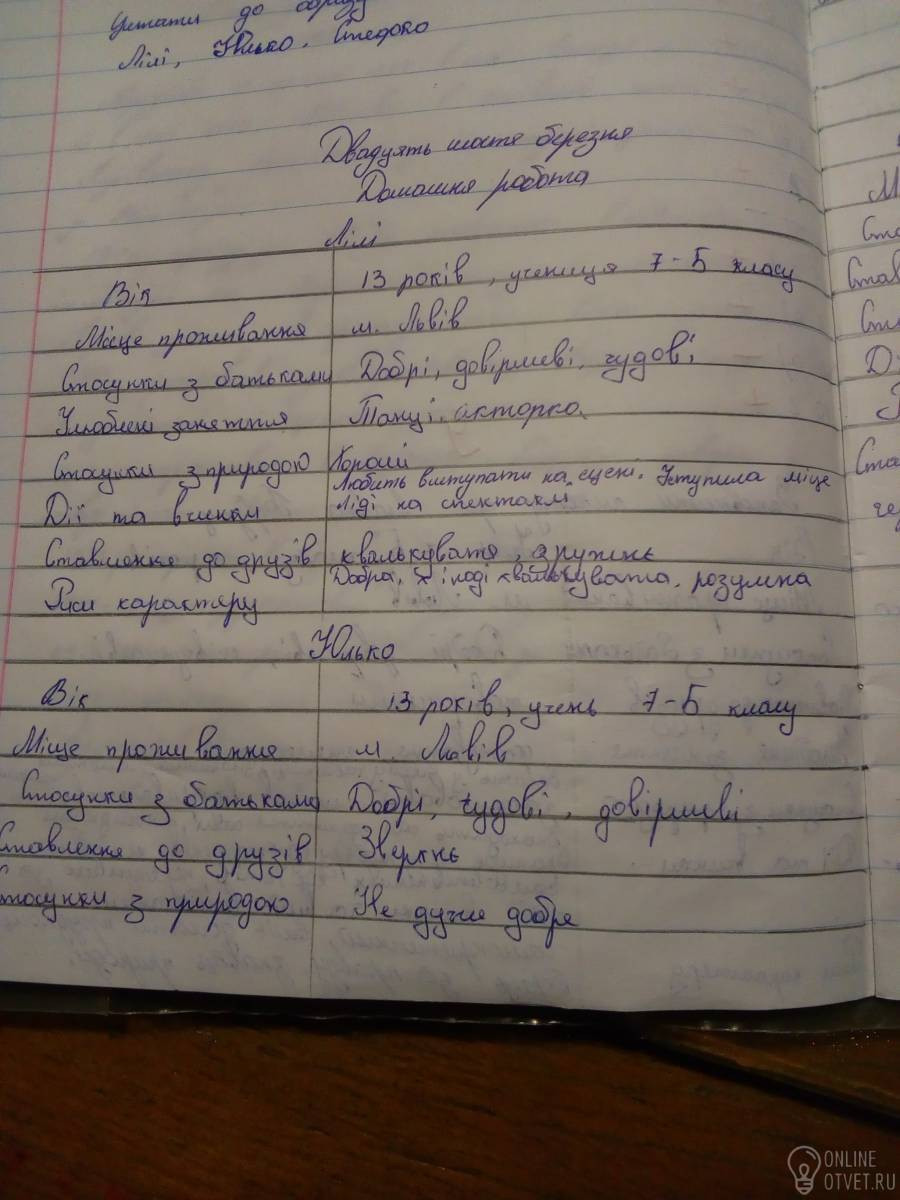 Цитати до образу
Лілі, Юлько, Стефко
Двадцять шосте березня
Домашня робота
Лілі
Вік 13 років, учениця 7-Б класу
Місце проживання м. Львів
Стосунки з батьками Добрі, довірливі, чудові
Улюблені заняття Танці, акторка
Стосунки з природою Хороші
Дії та вчинки Любить виступати на сцені. Уступила місце
Ліді на спектаклі
Ставлення до друзів
Риси характеру Добра, іноді розумна
Юлько
Вік 13 років, учень 7-Б класу
Місце проживання м. Львів
Стосунки з батьками Добрі, чудові, довірливі
Ставлення до друзів
Стосунки з природою Не дуже добре
М
Ста
Став
Ст
Ді
Р
Ста
ONLINE
OTVET.RU